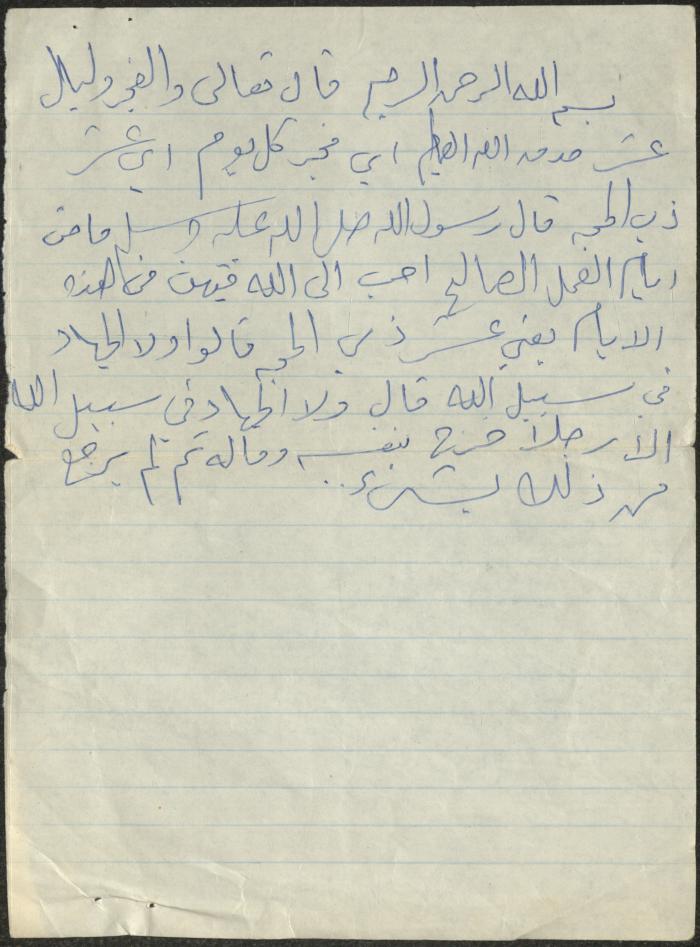 بسم الله الرحمن الرحيم قال تعالى والفجر وليال
عشر صدق الله العظيم اي فجر كل يوم اي عشر
ذي الحجه قال رسول الله صلى الله عليه وسلم ما من
ايام العمل الصالح احب الى الله فيهن من هذه
الايام يعني عشر ذي الحجه قالوا ولا الجهاد
في سبيل الله قال ولا الجهاد في سبيل الله
الا رجلا خرج بنفسه وماله ثم لم يرجع
من ذلك بشيء..